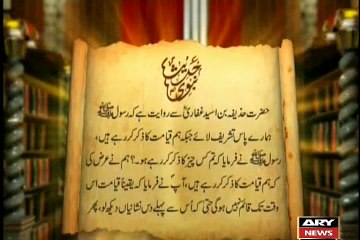 حدیث نبویؐ
حضرت حذیفہ بن اسید غفاریؓ سے روایت ہے کہ رسول ﷺ
ہمارے پاس تشریف لائے جبکہ ہم قیامت کا ذکر کر رہے ہیں،
رسول ﷺ نے فرمایا کہ تم کس چیز کا ذکر کر رہے ہو۔؟ ہم نے عرض کی
کہ ہم قیامت کا ذکر کر رہے ہیں، آپؐ نے فرمایا کہ یقیناً قیامت اس
وقت تک قائم نہیں ہوگی حتیٰ کہ اُس سے پہلے دس نشانیاں دیکھ لو، پھر
ARY
NEWS